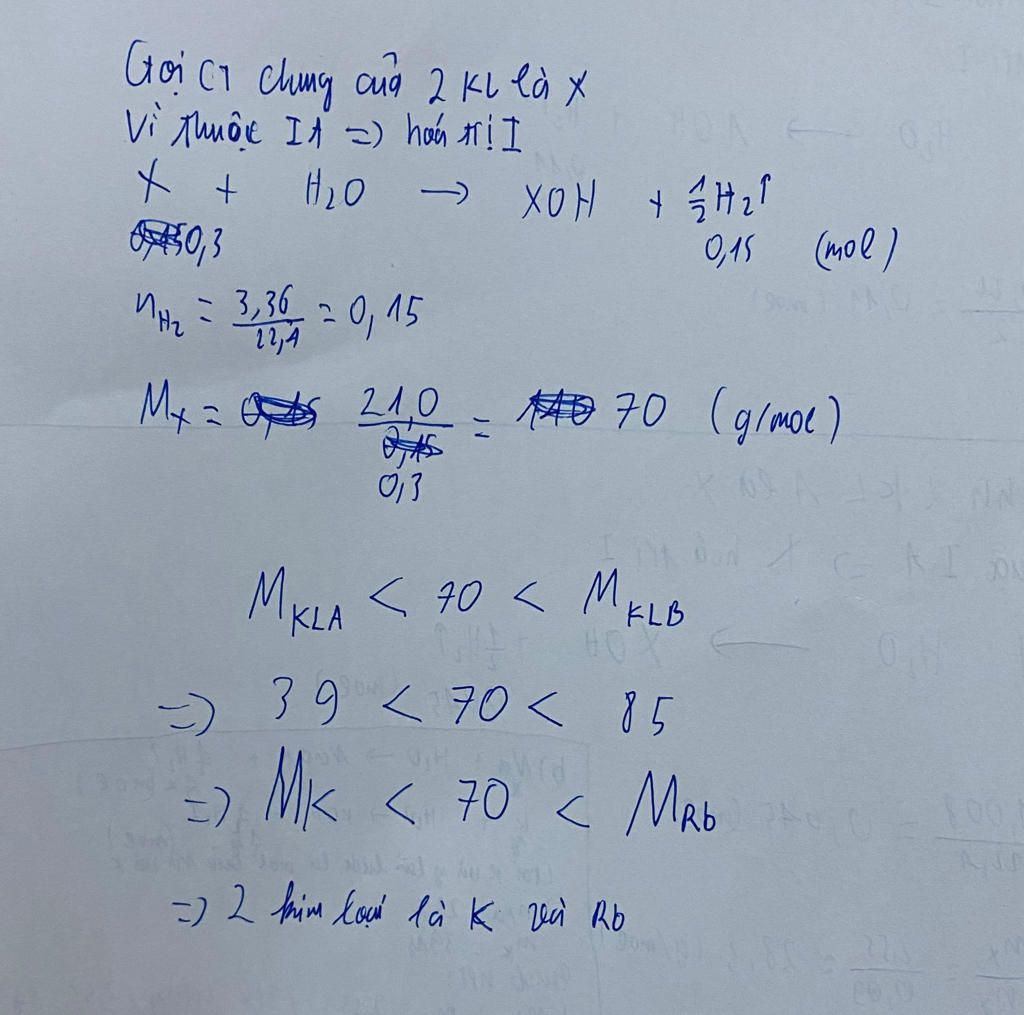 Gọi CT chung của 2 KL là X
Vì thuộc IA => hoá trị I
X + H₂O → XOH + 1/2 H₂↑
0,3 0,15 (mol)
n_H₂ = 3,36/22,4 = 0,15
M_X = 21,0/0,3 = 70 (g/mol)
M_KLA < 70 < M_KLB
=> 39 < 70 < 85
=> M_K < 70 < M_Rb
=> 2 kim loại là K và Rb